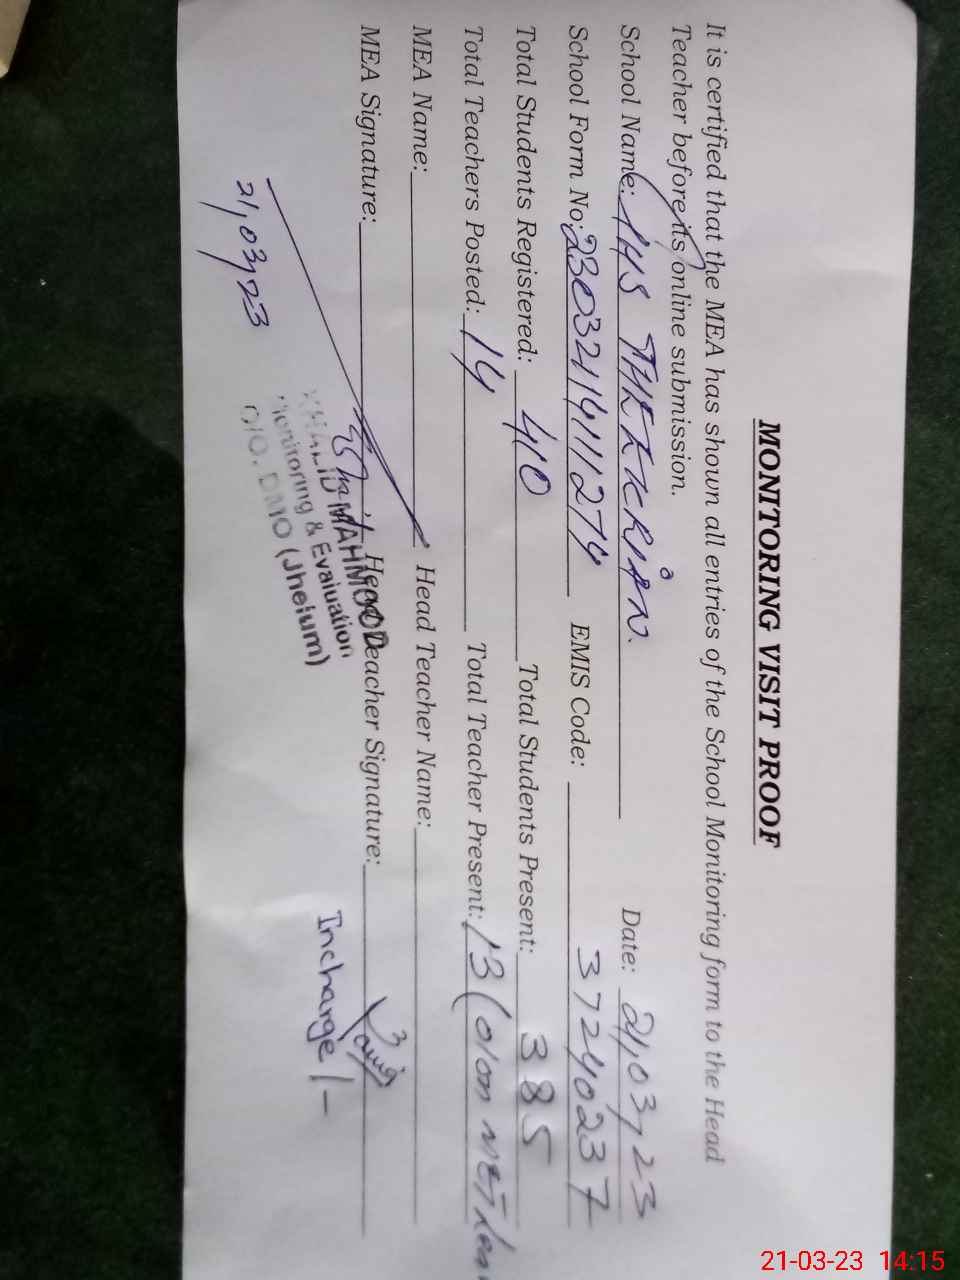 MONITORING VISIT PROOF
It is certified that the MEA has shown all entries of the School Monitoring form to the Head
Teacher before its online submission.
School Name: Date: 21,03,23
School Form No: EMIS Code: 37240237
Total Students Registered: 410 Total Students Present: 385
Total Teachers Posted: 14 Total Teacher Present: 13 (01 on
MEA Name: Head Teacher Name:
MEA Signature: Head Teacher Signature:
KHALID MAHMOOD
Monitoring & Evaluation
O/O. DMO (Jhelum)
21,03,23
Incharge/-
21-03-23 14:15